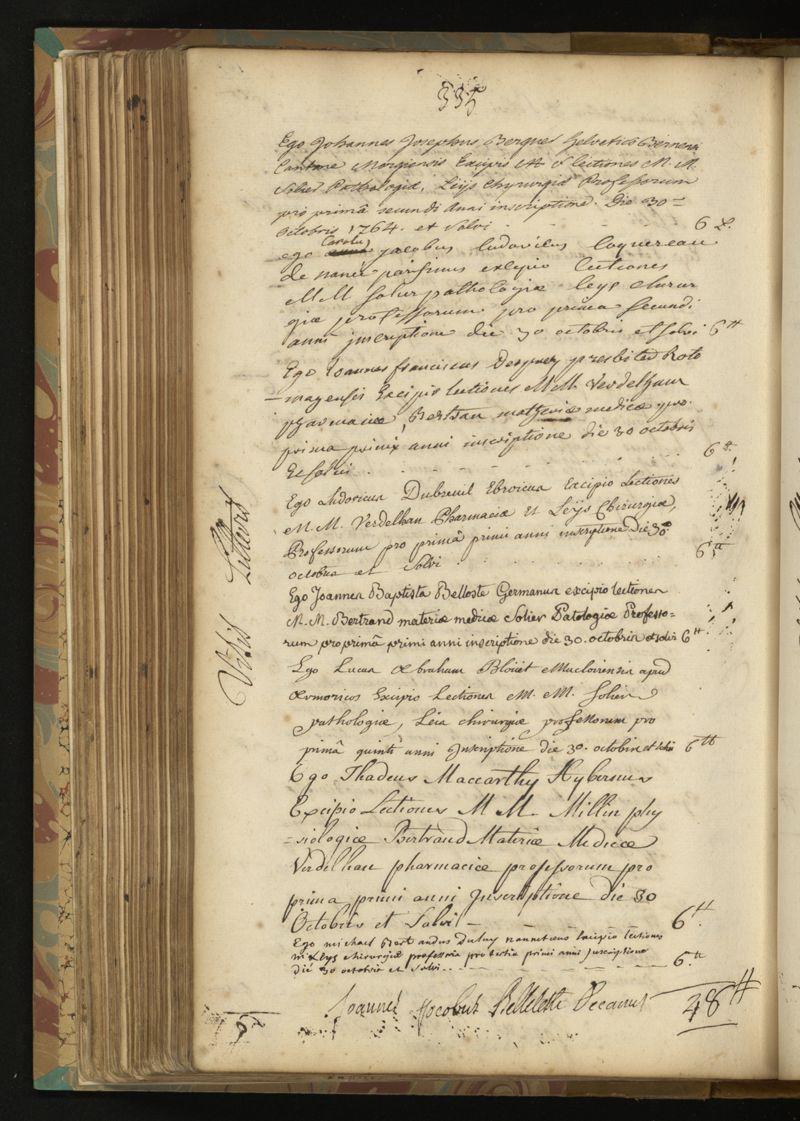 Ego Johannes Josephus Bergues helvetico Bernensi
Cantone Morgiensis Excipio lectiones M. M.
Solier Pathologiæ, Leijs Chyrurgiæ Professorum
pro primâ secundi Anni inscriptione. Die 30
octobris 1764. et Solvi 6
Carolus
ego jacobus ludovicus loquereau
de parisinus exipio lectiones
M M Solier pathologiæ leys chirur
giæ professorum pro prima secundi
anni inscriptione die 30 octobris et solvi 6 tt
Ego Joannes franciscus presbiter Roto
=magensis Excipio lectiones M.M. Verdelhan
pharmaciæ, Bertran materiæ medicæ pro
prima primi anni inscriptione die 30 octobris
Et solvi 6 tt
Ego Ludovicus Dubreuil Ebroicus Excipio Lectiones
M. M. Verdelhan Pharmaciæ et Leijs Chirurgiæ,
Professorum pro primâ primi anni inscriptione Die 30
octobris et Solvi 6 tt
Ego Joannes Baptista Belloste Germanus excipio lectiones
M. M. Bertrand materiæ medicæ Solier Patologiæ Professo=
rum pro primâ primi anni inscriptione die 30. octobris et solvi 6 tt
Ego Lucas Abraham Bloüet Macloviensis apud
Armoricos Excipio Lectiones M. M. Solier
pathologiæ, Leis chirurgiæ professorum pro
primâ quinti anni Inscriptione die 30. octobris et solvi 6 tt
Ego Thadeus Maccarthy Hybernus
Excipio Lectiones M M. Millin phy
=siologicæ Bertrand Materiæ Medicæ
Verdelhan pharmaciæ professorum pro
prima primi anni Inscriptione die 30
Octobris et Solvi 6 tt
Ego michael nannetensis Excipio lectiones
m Leys chirurgiæ professoris pro tertia primi anni Inscriptione
die 30 octobris et Solvi 6 tt
Joannes Jacobus Belleteste Decanus 48 tt
Vilis Litteris